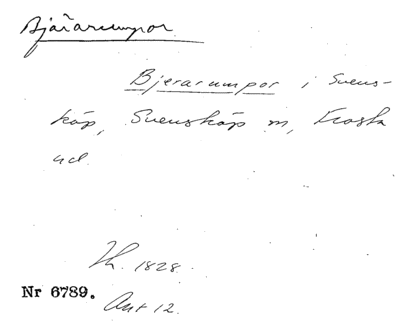 Bjärarumpor
Bjerarumpor i Svens-
köp, Svensköp sn, Frosta
hd.
Th. 1828.
Nr 6789.
Ant 12.